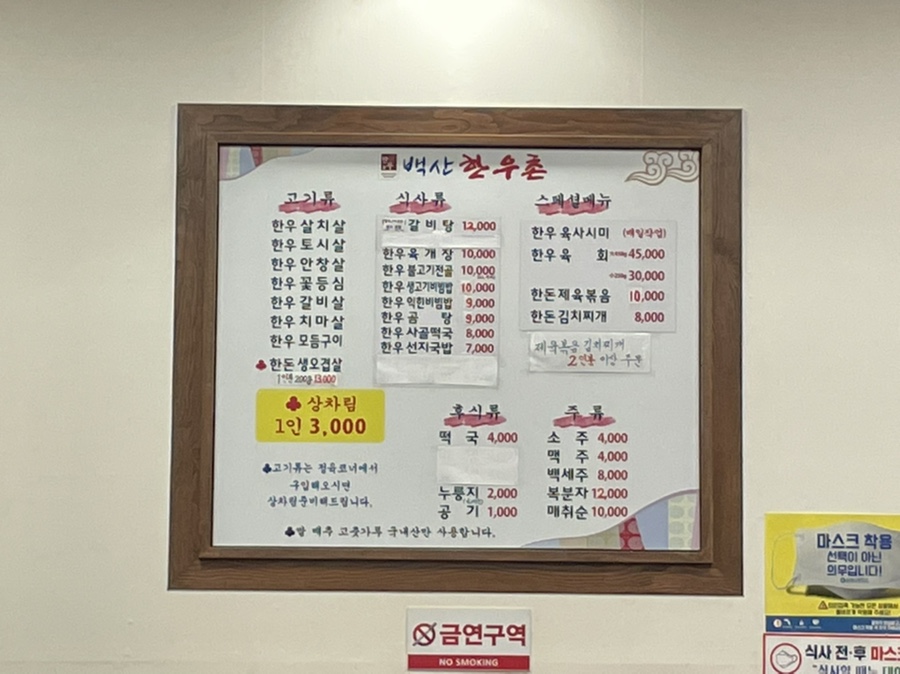 백산 한우촌
고기류
한우 살치살
한우 토시살
한우 안창살
한우 꽃등심
한우 갈비살
한우 치마살
한우 모듬구이
♣한돈 생오겹살
1인분 200g 13,000
♣ 상차림
1인 3,000
♣고기류는 정육코너에서
구입해오시면
상차림준비해드립니다.
식사류
갈비탕 12,000
한우 육개장 10,000
한우 불고기전골 10,000
한우 생고기비빔밥 10,000
한우 익힌비빔밥 9,000
한우 곰탕 9,000
한우 사골떡국 8,000
한우 선지국밥 7,000
스페셜메뉴
한우 육사시미 (매일작업)
한우 육회 45,000
30,000
한돈 제육볶음 10,000
한돈 김치찌개 8,000
제육볶음 김치찌개
2인분 이상 주문
후식류
떡국 4,000
누룽지 2,000
공기 1,000
주류
소주 4,000
맥주 4,000
백세주 8,000
복분자 12,000
매취순 10,000
♣쌀 배추 고춧가루 국내산만 사용합니다.
금연구역
NO SMOKING
마스크 착용
선택이 아닌
의무입니다!
식사 전·후 마스